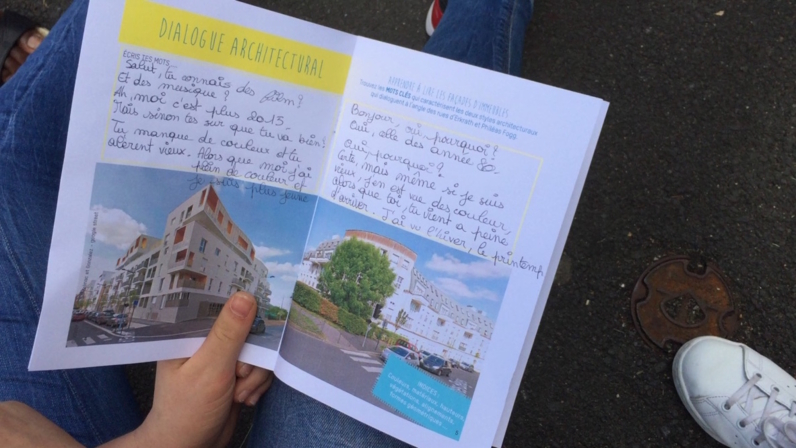 DIALOGUE ARCHITECTURAL
ECRIS TES MOTS...
Salut, tu connais des film?
Et des musique?
Ah, moi c'est plus 2015.
Mais sinon tes sur que tu va bien?
Tu manque de couleur et tu
vieux. Alors que moi j'ai
plein de couleur et
je suis plus jeune
APPRENDRE A LIRE LES FACADES D'IMMEUBLES
Trouvez les MOTS CLÉS qui caractérisent les deux styles architecturaux
qui dialoguent à l'angle des rues d'Entrath et Philéas Fogg.
Bonjour, oui pourquoi?
Oui, elle des année 80.
Oui, pourquoi?
Certe, mais même si je suis
vieux, j'en est vue des couleur,
alors que toi, tu vient a peine
d'arriver. J'ai vu l'hiver, le printemp
INDICES :
Couleurs, matériaux, hauteurs
végétations, alignements,
formes géométriques